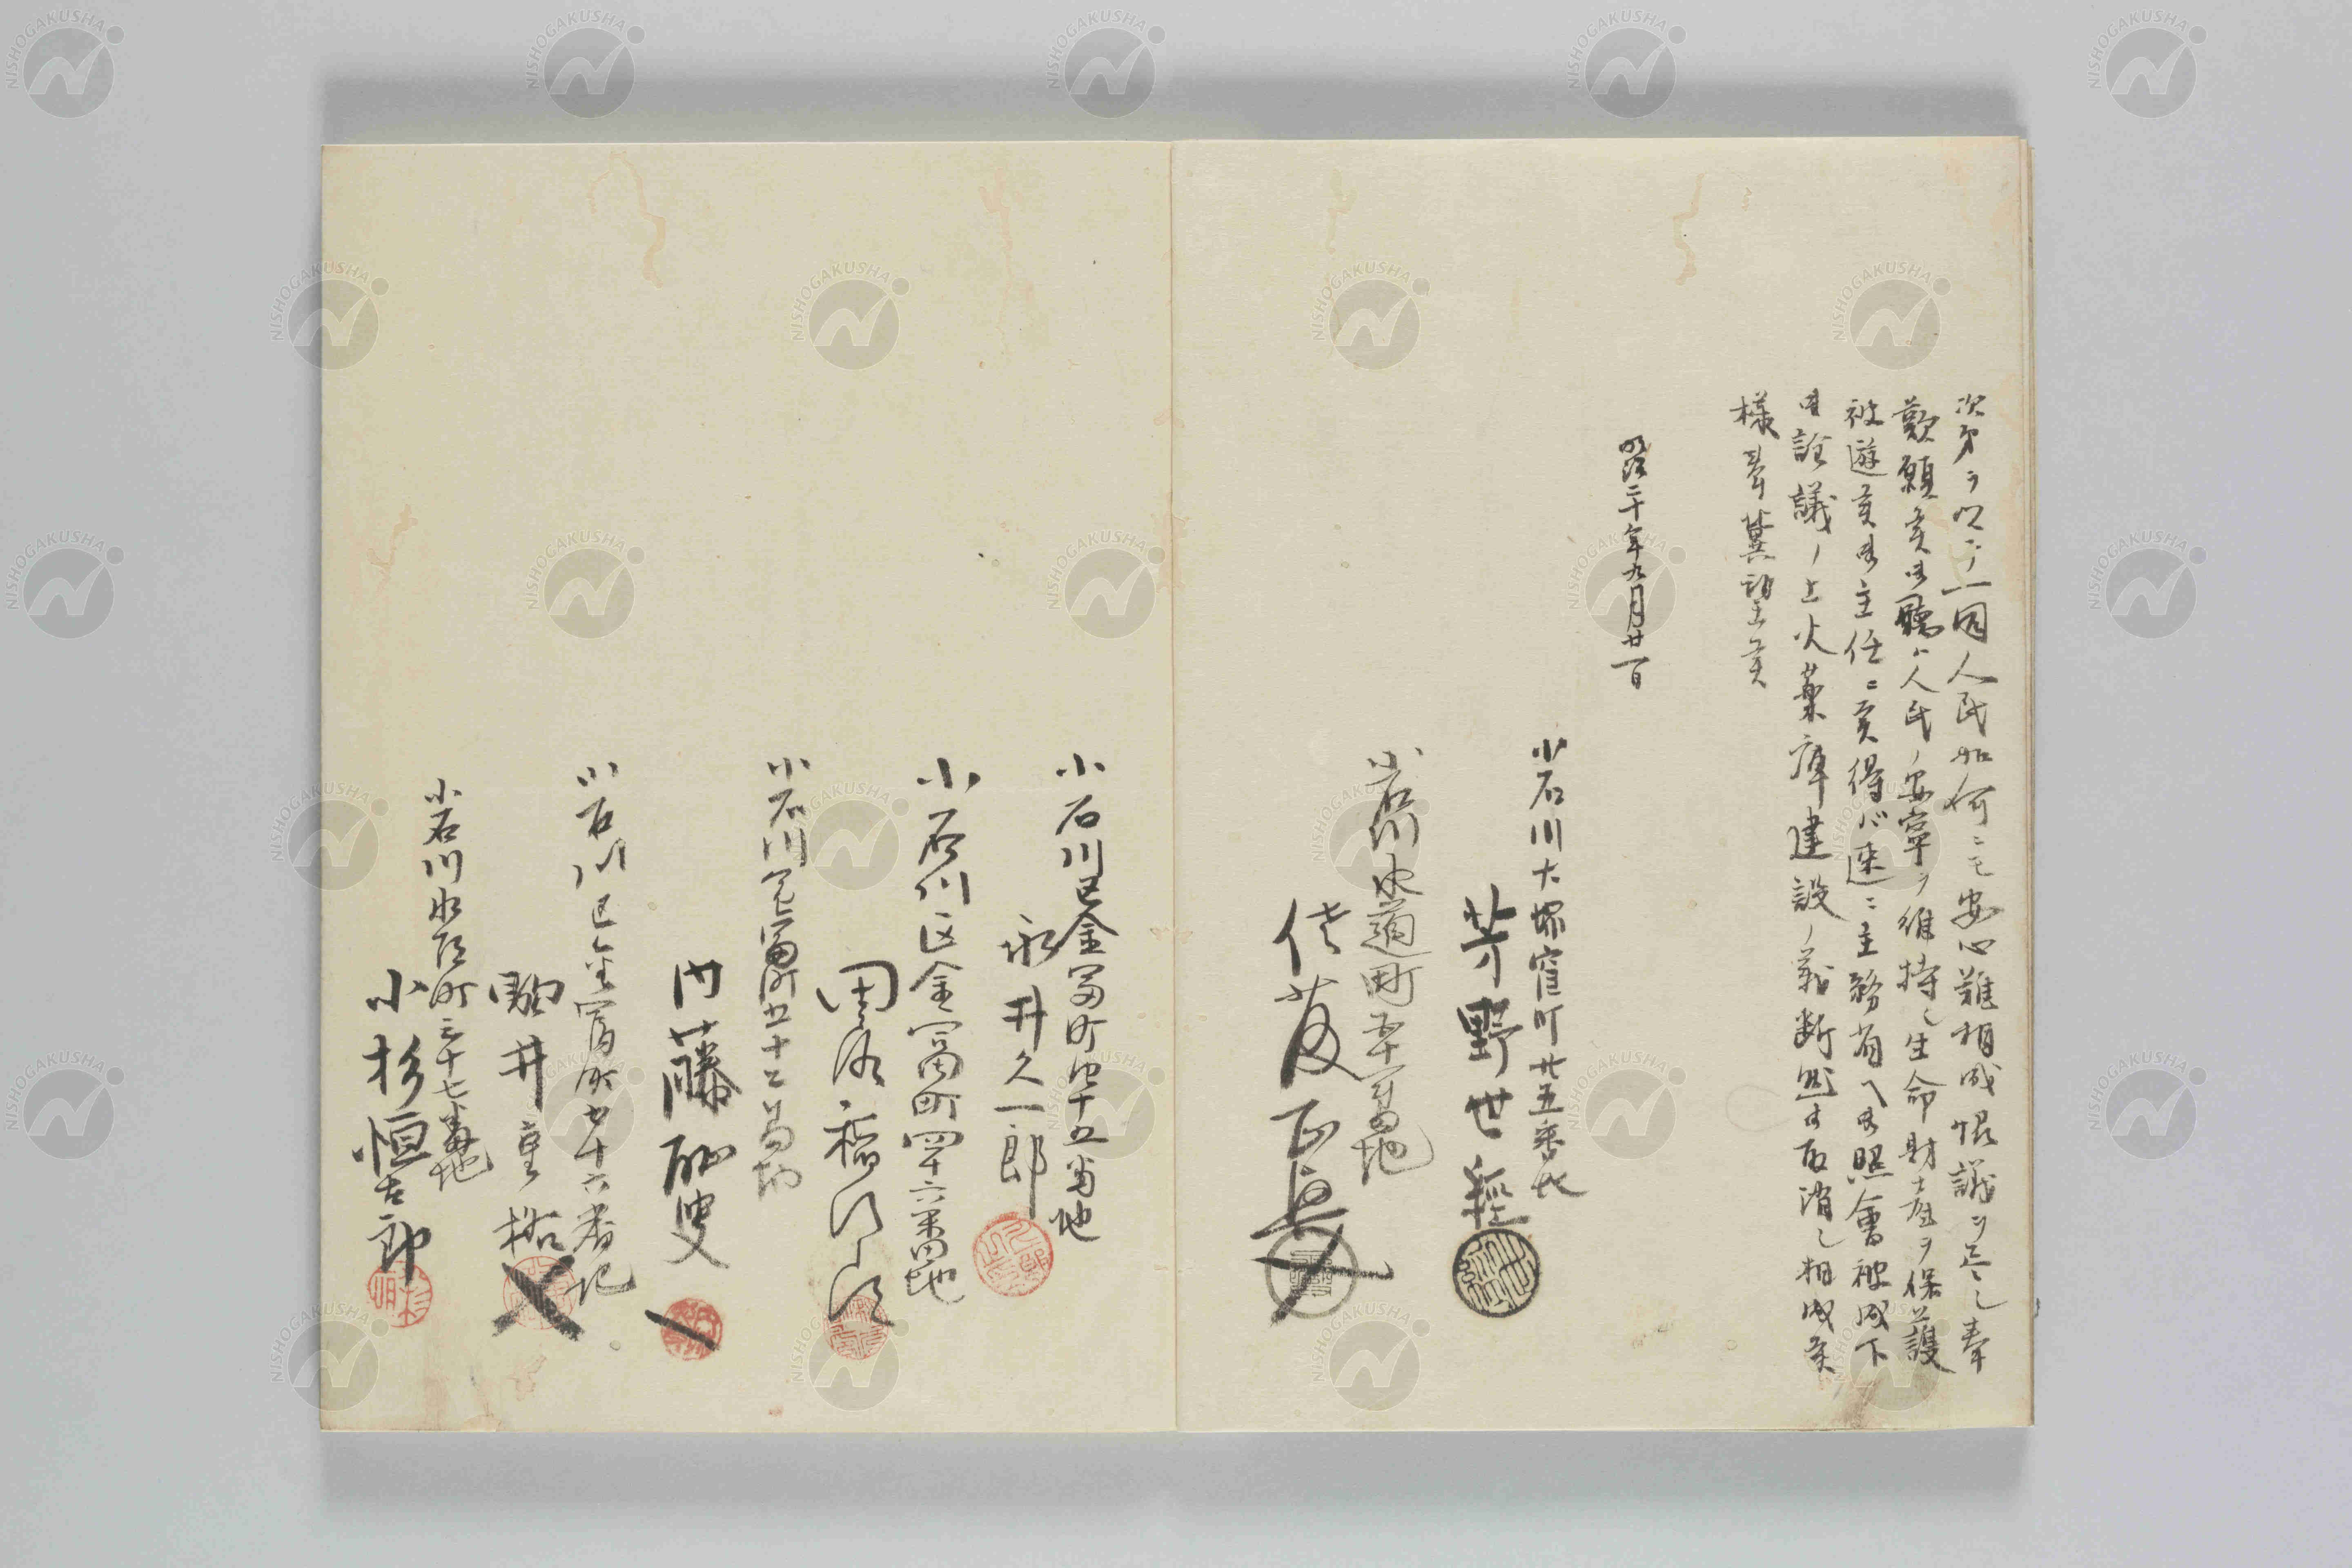 次第ヲ以テ一同人民如何ニモ安心難相成恨議ヲ尽シ奉
歎願候御聴ハ人民ノ安寧ヲ維持シ生命財産ヲ保護
被遊候御主任ニ候得ハ速ニ主務省ヘ御照會被成下
御詮議ノ上火薬庫建設ノ義断然御取消シ相成候
様奉冀望候
明治二十年九月廿一日
小石川大塚窪町廿五番地
芳野世經
小石川水道町
佐藤正興
小石川区金冨町四十五番地
永井久一郎
小石川区金冨町四十六番地
小石川冨町五十二番地
内藤耻叟
小石川区金冨町四十六番地
駒井重格
小石川水道町三十七番地
小杉恒太郎
NISHOGAKUSHA